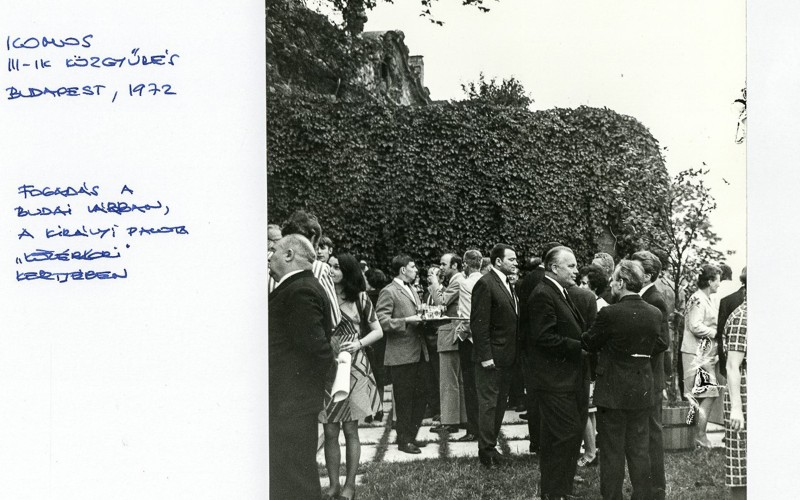 ICOMOS
III-IK KÖZGYŰLÉS
BUDAPEST, 1972
FOGADÁS A
BUDAI VÁRBAN,
A KIRÁLYI PALOTA
„KÖZÉPKORI"
KERTJÉBEN